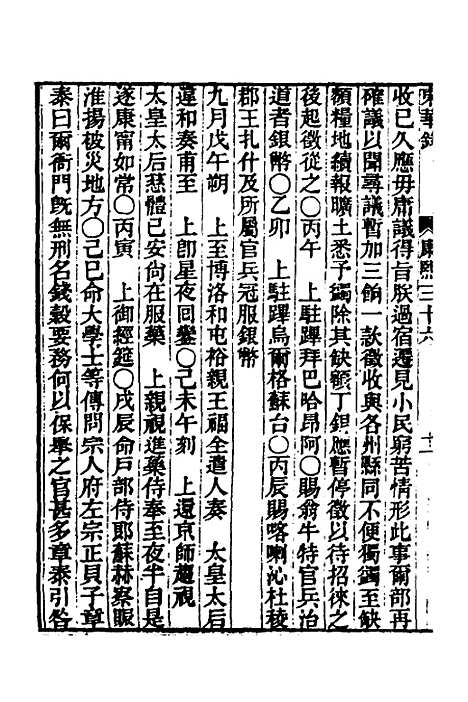 東華錄　康熙三十六　十二
收已久應毋庸議得旨朕過宿遷見小民窮苦情形此事爾部再
確議以聞尋議暫加三餉一款徵收與各州縣同不便獨蠲至缺
額糧地續報曠土悉予蠲除其缺額丁銀應暫停徵以待招徠之
後起徵從之〇丙午　上駐蹕拜巴哈昂阿〇賜翁牛特官兵治
道者銀幣〇乙卯　上駐蹕烏爾格蘇台〇丙辰賜喀喇沁杜稜
郡王扎什及所屬官兵冠服銀幣
九月戊午朔　上至博洛和屯裕親王福全遣人奏　太皇太后
違和奏甫至　上卽星夜回鑾〇己未午刻　上還京師趨視
太皇太后慈體已安尙在服藥　上親視進藥侍奉至夜半自是
遂康甯如常〇丙寅　上御經筵〇戊辰命戸部侍郎蘇赫察賑
淮揚被災地方〇己巳命大學士等傳問宗人府左宗正貝子章
泰曰爾衙門旣無刑名錢穀要務何以保舉之官甚多章泰引咎